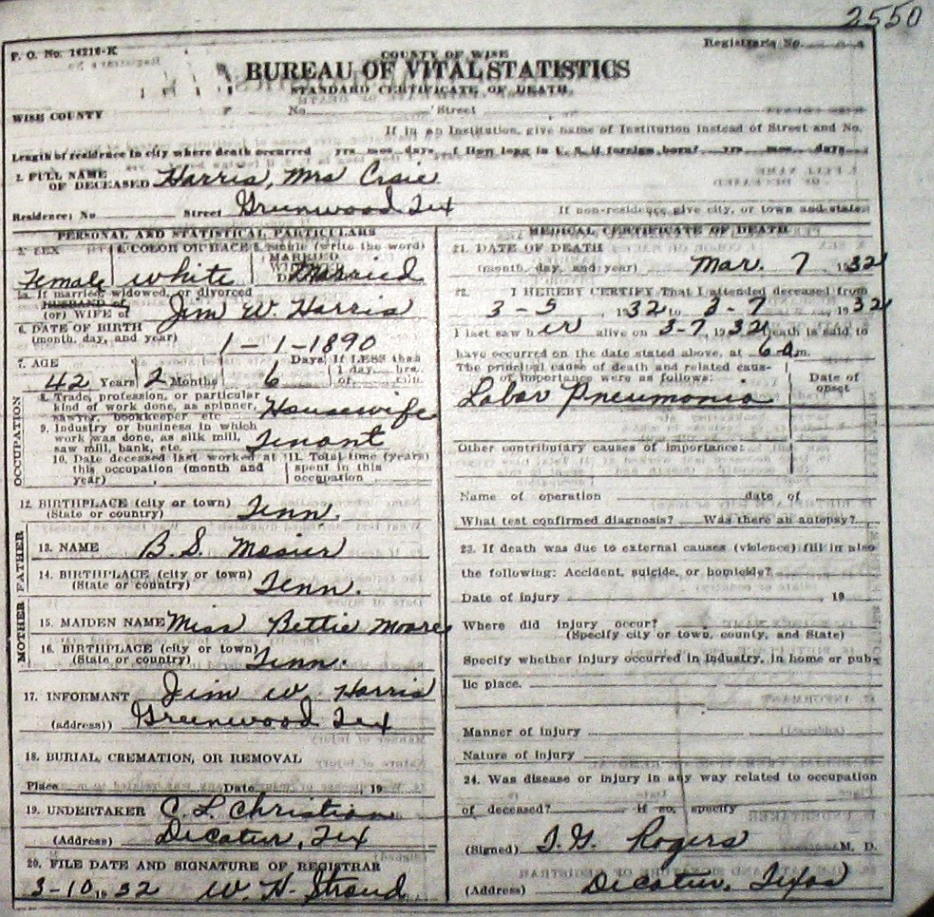 2550
F. O. No. 14216-K
COUNTY OF WISE
Registrar's No.
BUREAU OF VITAL STATISTICS
STANDARD CERTIFICATE OF DEATH
WISE COUNTY No. Street
If in an Institution, give name of Institution instead of Street and No.
Length of residence in city where death occurred yrs. mos. days. How long in U. S. if foreign born? yrs. mos. days
2. FULL NAME OF DECEASED Harris, Mrs Craie
Residence: No Street Greenwood Tex If non-residence give city, or town and state
PERSONAL AND STATISTICAL PARTICULARS
3. SEX 4. COLOR OR RACE 5. Single (write the word)
MARRIED
Female white Married
5a. If married, widowed, or divorced
HUSBAND of
(or) WIFE of Jim W. Harris
6. DATE OF BIRTH
(month, day, and year) 1-1-1890
7. AGE Days If LESS than
1 day hrs.
42 Years 2 Months 6 or min.
OCCUPATION
8. Trade, profession, or particular
kind of work done, as spinner,
sawyer, bookkeeper, etc Housewife
9. Industry or business in which
work was done, as silk mill,
saw mill, bank, etc. Tenant
10. Date deceased last worked at 11. Total time (years)
this occupation (month and spent in this
year) occupation
12. BIRTHPLACE (city or town)
(State or country) Tenn.
FATHER
13. NAME B. S. Mosier
14. BIRTHPLACE (city or town)
(State or country) Tenn.
MOTHER
15. MAIDEN NAME Miss Bettie Moore
16. BIRTHPLACE (city or town)
(State or country) Tenn.
17. INFORMANT Jim W. Harris
(address)) Greenwood Tex
18. BURIAL, CREMATION, OR REMOVAL
Place Date 19
19. UNDERTAKER C. L. Christian
(Address) Decatur, Tex
20. FILE DATE AND SIGNATURE OF REGISTRAR
3-10, 1932 W. H. Stroud
MEDICAL CERTIFICATE OF DEATH
21. DATE OF DEATH
(month, day, and year) Mar. 7 1932
22. I HEREBY CERTIFY That I attended deceased from
3-5 1932 to 3-7 1932
I last saw her alive on 3-7, 1932 death is said to
have occurred on the date stated above, at 6 a m.
The principal cause of death and related causes
of importance were as follows: Date of onset
Lobar Pneumonia
Other contributary causes of importance:
Name of operation date of
What test confirmed diagnosis? Was there an autopsy?
23. If death was due to external causes (violence) fill in also
the following: Accident, suicide, or homicide?
Date of injury 19
Where did injury occur?
(Specify city or town, county, and State)
Specify whether injury occurred in industry, in home or pub-
lic place.
Manner of injury
Nature of injury
24. Was disease or injury in any way related to occupation
of deceased? If so, specify
(Signed) T. G. Rogers M. D.
(Address) Decatur, Texas